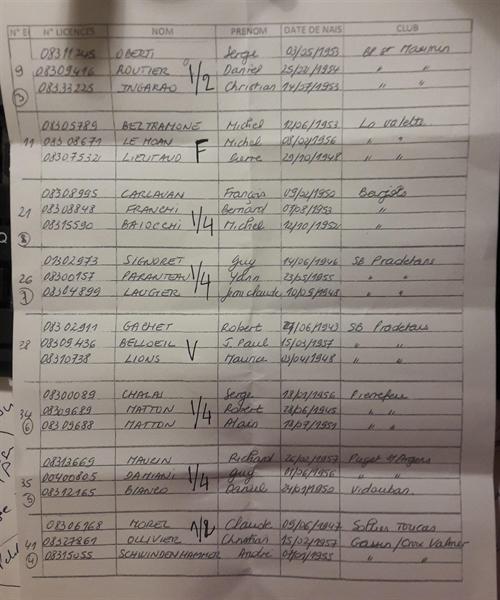 N° E N° LICENCES NOM PRENOM DATE DE NAIS CLUB
08311245 OBERTI Serge 03/25/1953 BP St Maximin
9 08309416 ROUTIER 1/2 Daniel 25/22/1954 " "
3 08333225 INGARAO Christian 14/07/1953 " "
08305789 BELTRAMONE Michel 12/06/1953 La Valette
11 08308671 LE MOAN F Michel 08/02/1956 " "
08307532 LIEUTAUD Pierre 29/10/1948 " "
08308995 CARLAVAN François 09/02/1950 Barjols
21 08308848 FRANCHI 1/4 Bernard 07/08/1953 "
8 08315590 BAIOCCHI Michel 12/10/1952 "
01302973 SIGNORET Guy 14/06/1946 SB Pradetans
26 08300157 PARANTEAU 1/4 Yann 23/05/1955 " "
7 08304899 LAUGIER Jean claude 10/05/1948 " "
08302911 GACHET Robert 27/06/1943 SB Pradetans
28 08309436 BELLOEIL V J. Paul 15/03/1957 " "
08310738 LIONS Maurice 03/04/1948 " "
08300089 CHALAS Serge 18/01/1956 Pierrefeu
34 08309689 MATTON 1/4 Robert 28/06/1945 " "
6 08309688 MATTON Alain 19/07/1951 " "
08313669 MAURIN Richard 26/02/1957 Puget s/Argens
35 00400805 DAMIANI 1/4 Guy 01/06/1956 " "
5 08312165 BIANCO Daniel 24/01/1950 Vidauban
08306768 MOREL 1/2 Claude 05/06/1947 Sollies Toucas
41 08327861 OLLIVIER Christian 15/02/1957 Gassin/Croix Valmer
4 08315055 SCHWINDENHAMMER André 01/01/1955 " "